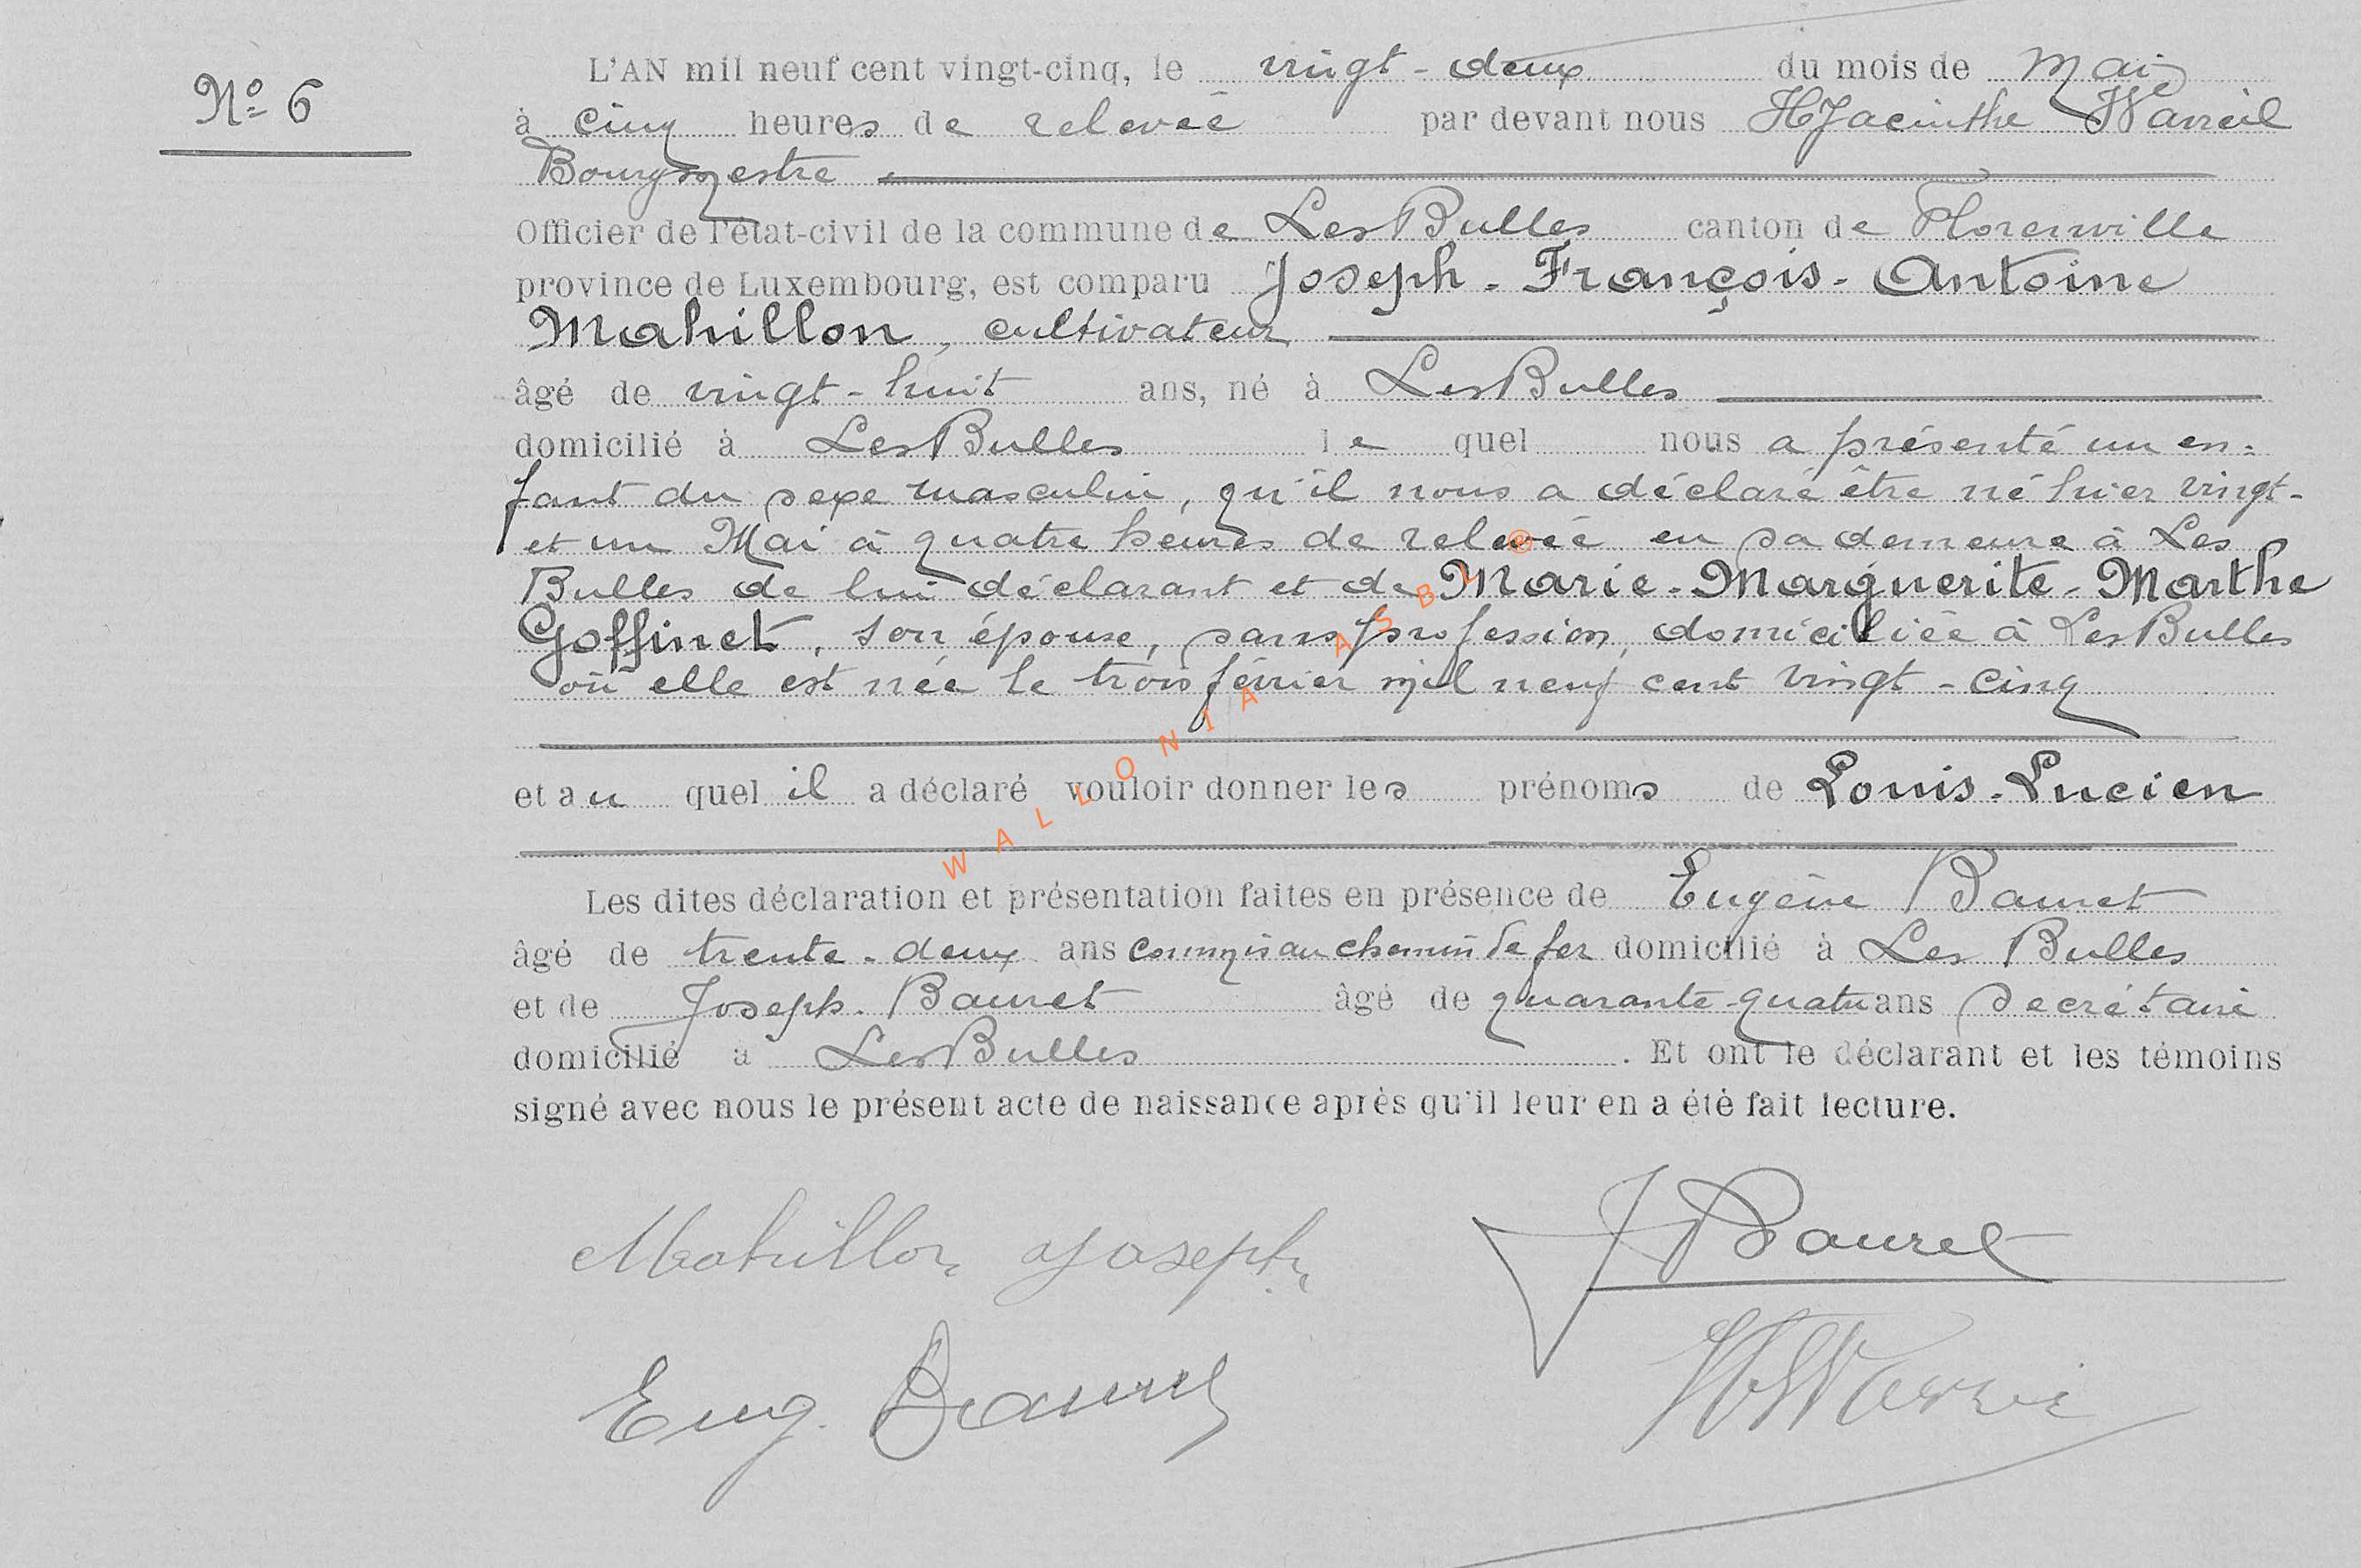 Nº 6
L'AN mil neuf cent vingt-cinq, le vingt-deux du mois de Mai
à cinq heures de relevée par devant nous Hyacinthe
Bourgmestre
Officier de l'état-civil de la commune de Les Bulles canton de Florenville
province de Luxembourg, est comparu Joseph-François-Antoine
Mahillon, cultivateur
âgé de vingt-huit ans, né à Les Bulles
domicilié à Les Bulles le quel nous a présenté un en=
fant du sexe masculin, qu'il nous a déclaré être né hier vingt-
et un Mai à quatre heures de relevée en sa demeure à Les
Bulles de lui déclarant et de Marie-Marguerite-Marthe
Goffinet, son épouse, sans profession, domiciliée à Les Bulles
où elle est née le trois février mil neuf cent vingt-cinq
et au quel il a déclaré vouloir donner les prénoms de Louis-Lucien
Les dites déclaration et présentation faites en présence de Eugène Bauret
âgé de trente-deux ans commis au chemin de fer domicilié à Les Bulles
et de Joseph Bauret âgé de quarante-quatre ans secrétaire
domicilié à Les Bulles. Et ont le déclarant et les témoins
signé avec nous le présent acte de naissance après qu'il leur en a été fait lecture.
Mahillon Joseph
J Bauret
Eug. Bauret
WALLONIA ASBL ©